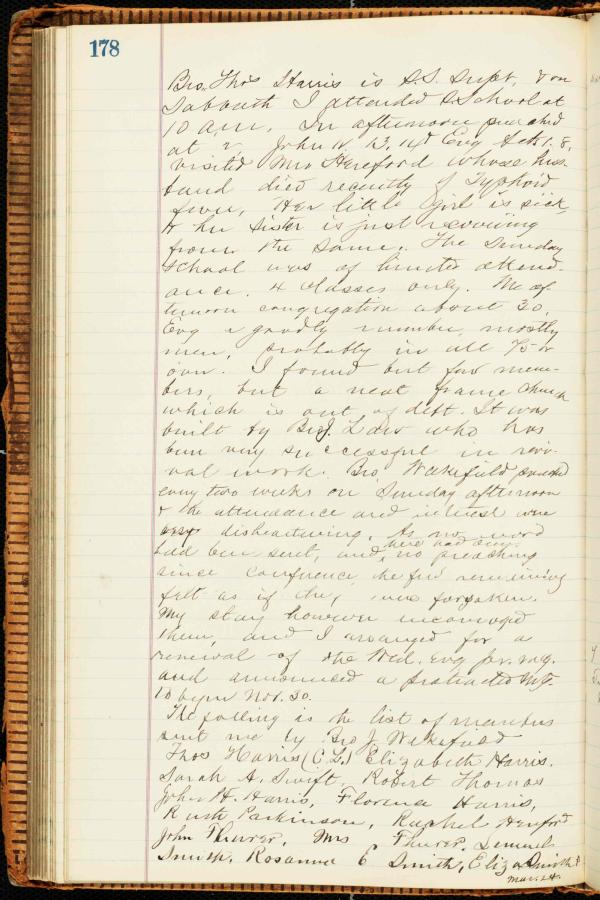 178
Bro. Thos Harris is S.S. Supt, & on
Sabbath I attended S. School at
10 a.m. In afternoon preached
at 2, John Evg Acts 1.8,
visited Mrs Hereford whose hus-
band died recently of Typhoid
fever, Her little girl is sick,
& her sister is just recovering
from the same. The Sunday
School was of limited attend-
ance. 4 classes only. The af-
ternoon congregation about 30,
Evg a goodly number, mostly
men, probably in all 75 or
over. I found but few mem-
bers, but a neat frame Church
which is out of debt. It was
built by Bro J. Law who has
been very successful in revi-
val work. Bro. Wakefield preached
every two weeks on Sunday afternoon
& the attendance and interest were
very disheartening. As no word
had been sent, and, no preaching
here had been
since conference, the few remaining
felt as if they were forsaken.
My stay however encouraged
them, and I arranged for a
renewal of the Wed. Evg pr. mg.
and announced a protracted Mtg.
to begin Nov. 30.
The folling is the list of members
sent me by Bro J. Wakefield
Thos Harris (C.L.) Elizabeth Harris.
Sarah A. Swift, Robert Thomas
John H. Harris, Florence Harris,
Ruth Parkinson, Rachel Hereford
John Thurer, Mrs Thurer, Lemuel
Smith, Rosanna E Smith, Eliza Smith